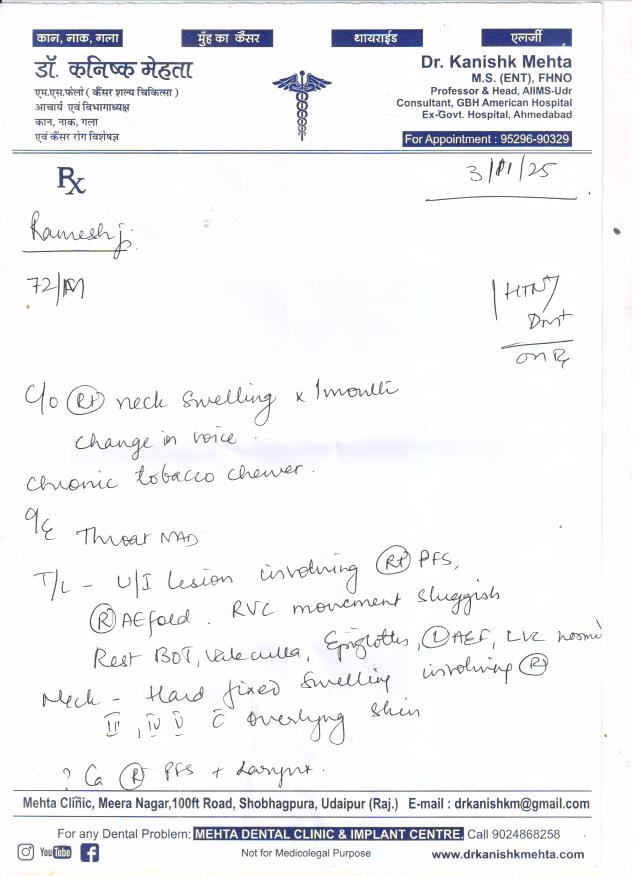 कान, नाक, गला
मुँह का कैंसर
थायराईड
एलर्जी
डॉ. कनिष्क मेहता
एम.एस.फेलो ( कैंसर शल्य चिकित्सा )
आचार्य एवं विभागाध्यक्ष
कान, नाक, गला
एवं कैंसर रोग विशेषज्ञ
Dr. Kanishk Mehta
M.S. (ENT), FHNO
Professor & Head, AIIMS-Udr
Consultant, GBH American Hospital
Ex-Govt. Hospital, Ahmedabad
For Appointment : 95296-90329
Rx
3/11/25
Ramesh j.
72/M
HTN
DM+
on Rx
C/o (Rt) neck swelling x 1 month
change in voice.
chronic tobacco chewer.
O/E Throat NAD
T/L - U/I lesion involving (Rt) PFS,
(R) AE fold. RVC movement sluggish
Rest BOT, Vallecula, Epiglottis, (L) AEF, LVC normal
Neck - Hard fixed swelling involving (R)
III, IV V c̄ overlying skin
? Ca (R) PFS + Larynx.
Mehta Clinic, Meera Nagar,100ft Road, Shobhagpura, Udaipur (Raj.) E-mail : drkanishkm@gmail.com
For any Dental Problem: MEHTA DENTAL CLINIC & IMPLANT CENTRE. Call 9024868258
YouTube
Not for Medicolegal Purpose
www.drkanishkmehta.com